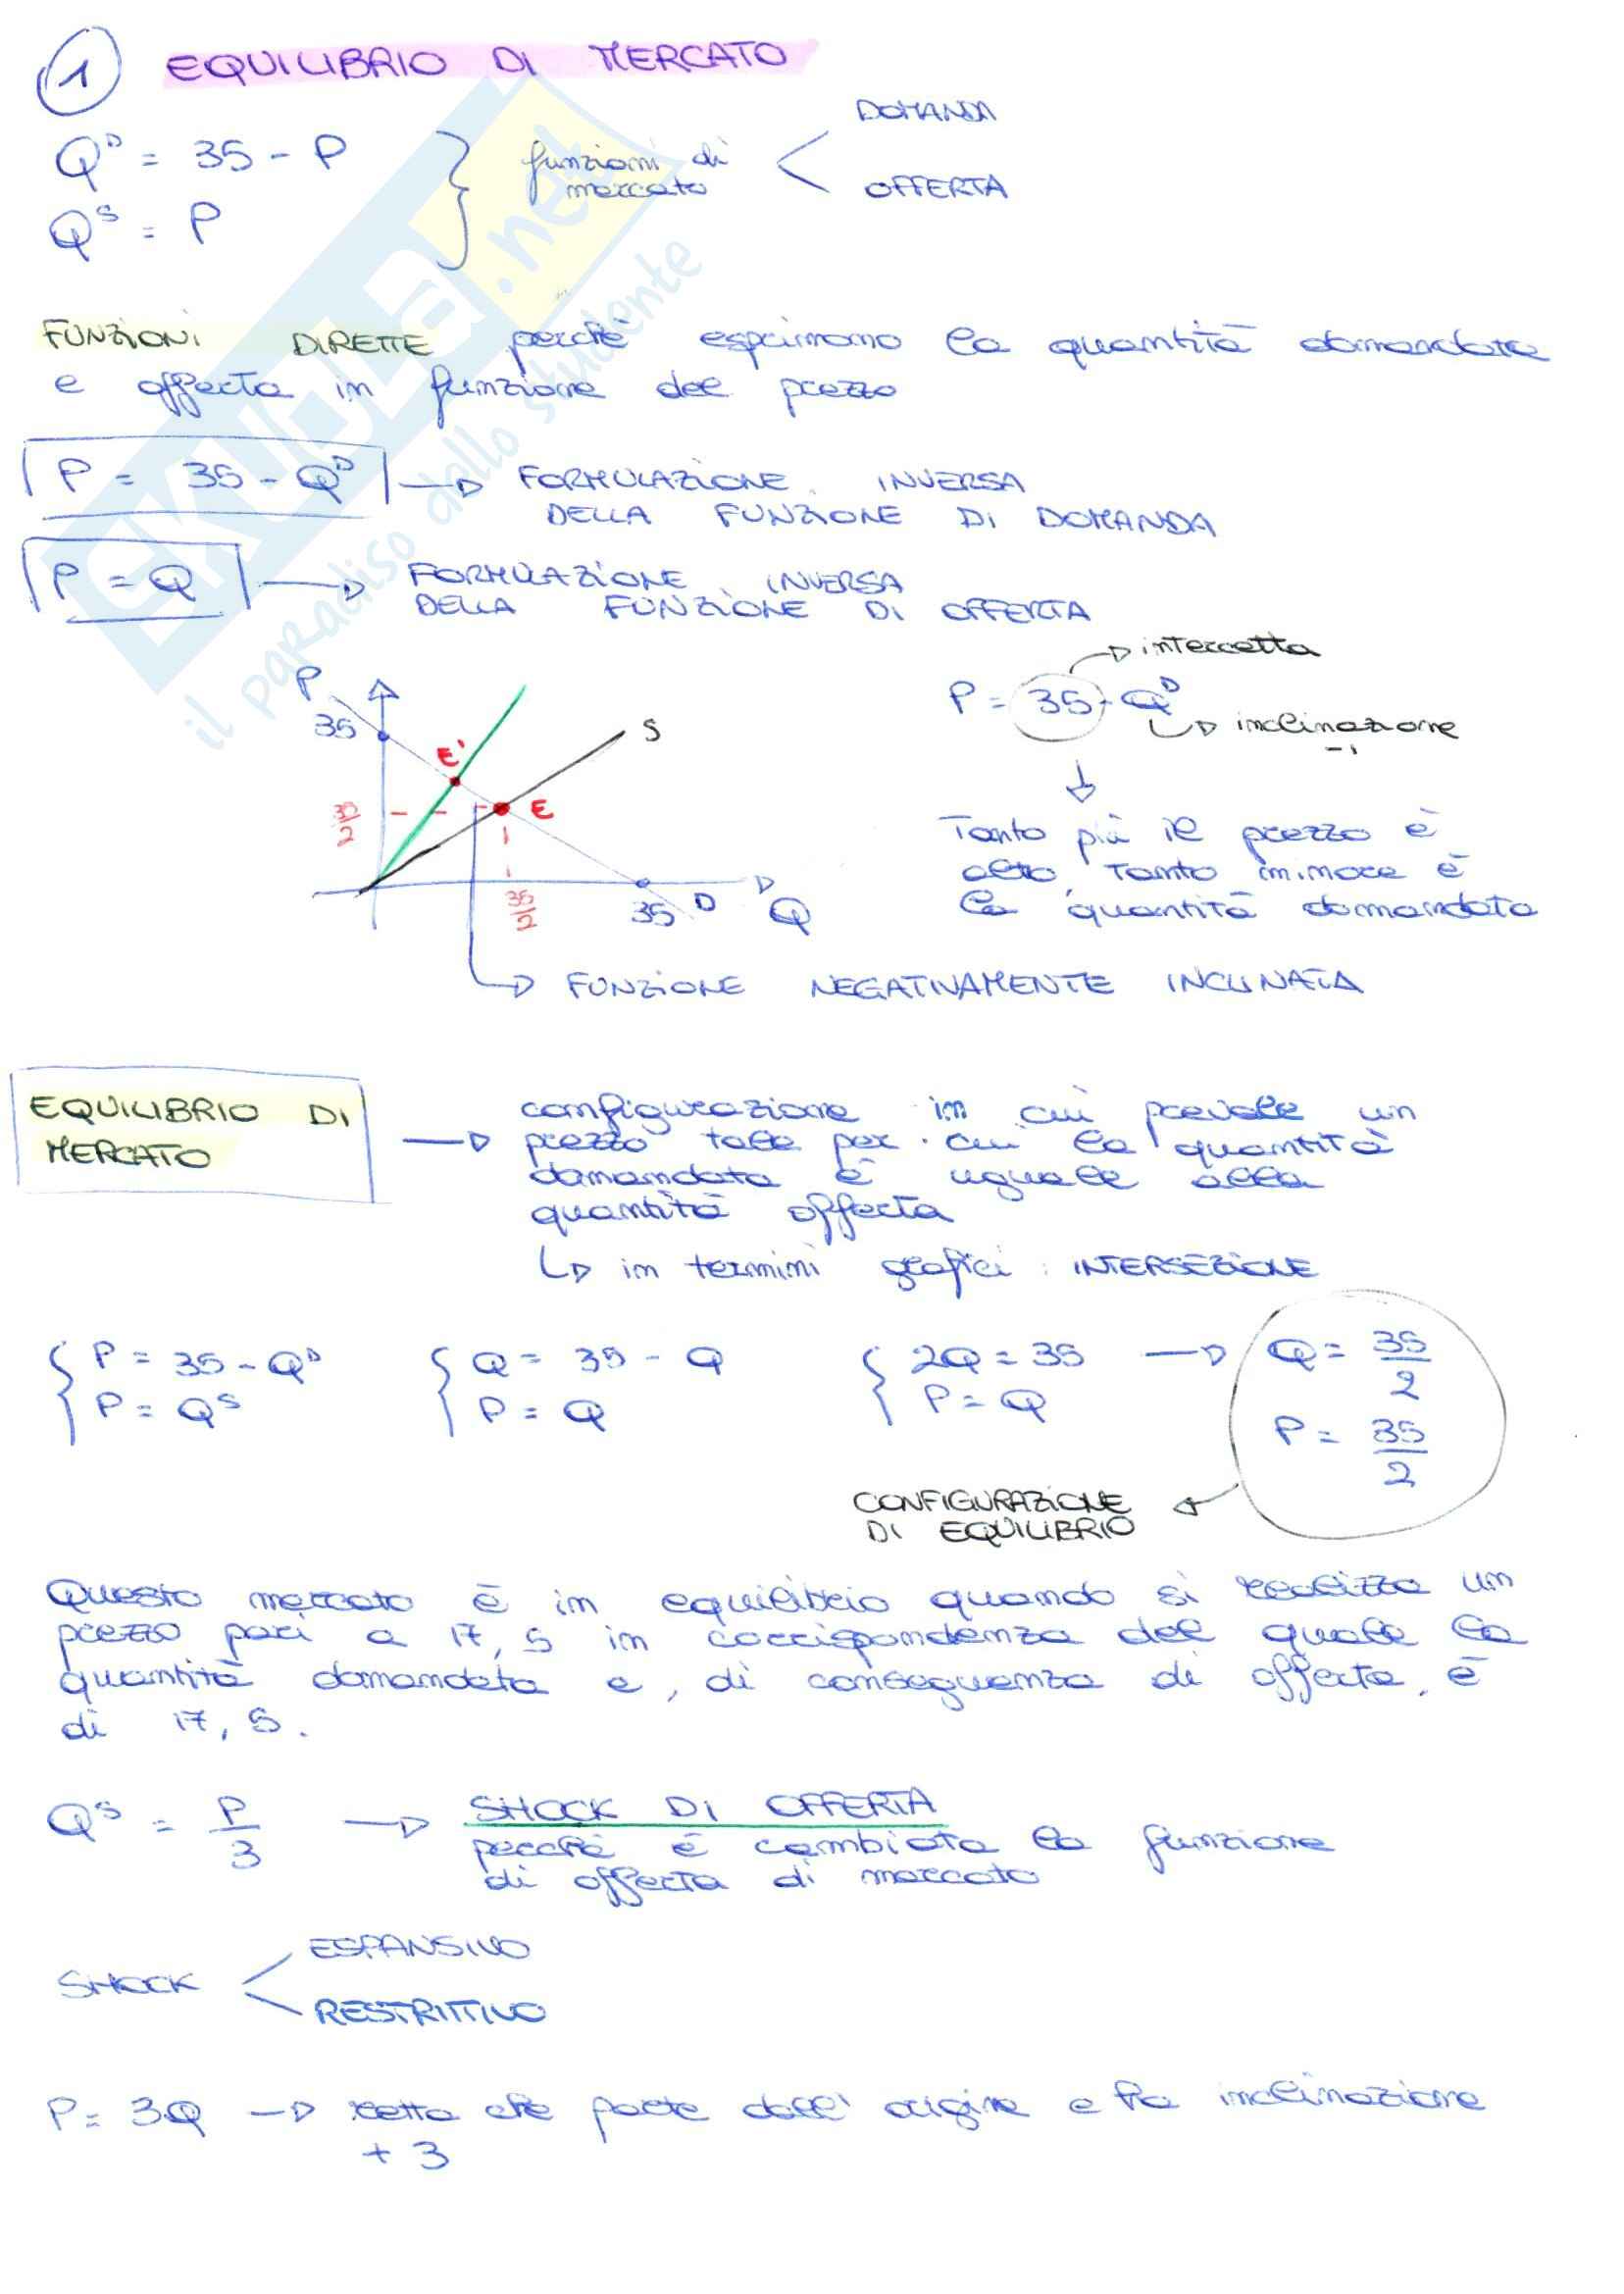 1 EQUILIBRIO DI MERCATO
Q^D = 35 - P
Q^S = P
funzioni di mercato
DOMANDA
OFFERTA
FUNZIONI DIRETTE perchè esprimono la quantità domandata
e offerta in funzione del prezzo
P = 35 - Q^D → FORMULAZIONE INVERSA
DELLA FUNZIONE DI DOMANDA
P = Q → FORMULAZIONE INVERSA
DELLA FUNZIONE DI OFFERTA
P
35
E'
E
S
35/2
35/2
35
D
Q
→ FUNZIONE NEGATIVAMENTE INCLINATA
→ intercetta
P = 35 - Q^D
→ inclinazione
-1
↓
Tanto più il prezzo è
alto, tanto minore è
la quantità domandata
EQUILIBRIO DI
MERCATO
→ configurazione in cui prevale un
prezzo tale per cui la quantità
domandata è uguale alla
quantità offerta
↳ in termini grafici: INTERSEZIONE
{ P = 35 - Q^D
P = Q^S
{ Q = 35 - Q
P = Q
{ 2Q = 35 → Q = 35/2
P = Q
P = 35/2
CONFIGURAZIONE
DI EQUILIBRIO
Questo mercato è in equilibrio quando si realizza un
prezzo pari a 17,5 in corrispondenza del quale la
quantità domandata e, di conseguenza di offerta, è
di 17,5.
Q^S = P/3 → SHOCK DI OFFERTA
perchè è cambiata la funzione
di offerta di mercato
SHOCK
ESPANSIVO
RESTRITTIVO
P = 3Q → retta che parte dall'origine e ha inclinazione
+3
SKUOLa.net
il paradiso dello studente